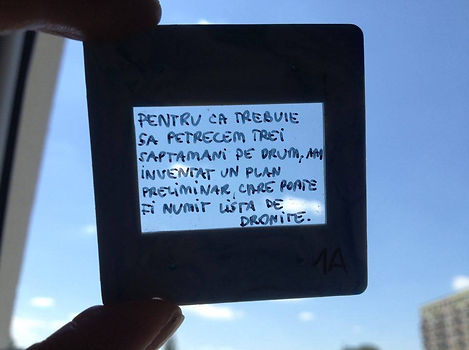 PENTRU CA TREBUIE
SA PETRECEM TREI
SAPTAMANI PE DRUM, AM
INVENTAT UN PLAN
PRELIMINAR, CARE POATE
FI NUMIT LISTA DE
DROMITE.
1A